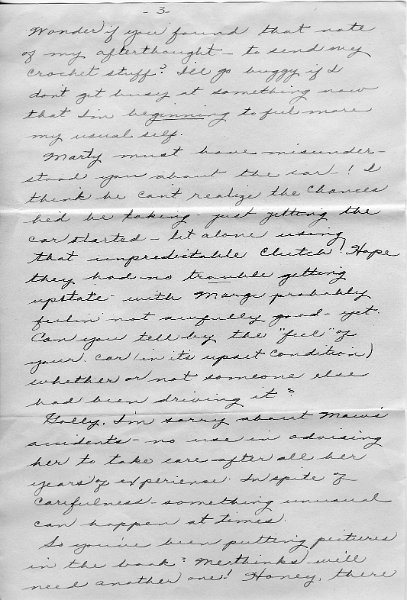 - 3 -
Wonder if you found that note
of my afterthought - to send my
crochet stuff? I'll go buggy if I
don't get busy at something now
that I'm beginning to feel more
my usual self.
Marty must have misunder-
stood you about the car! I
think he can't realize the chances
he'd be taking just getting the
car started - let alone using
that unpredictable clutch! Hope
they had no trouble getting
upstate - with Marge probably
feelin' not awfully good - yet.
Can you tell by the "feel" of
your car (in its upset condition)
whether or not someone else
had been driving it?
Golly, I'm sorry about Maw's
accidents - no use in advising
her to take care - after all her
years of experience. In spite of
carefulness - something unusual
can happen at times.
So you've been putting pictures
in the book? Methinks we'll
need another one! Honey, there